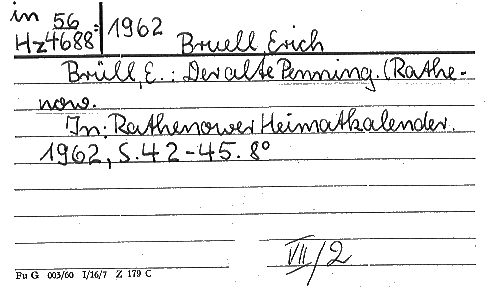 in 56
Hz 4688: 1962
Bruell, Erich
Brüll, E.: Der alte Penning. (Rathe-
now.
In: Rathenower Heimatkalender.
1962, S. 42-45. 8°
VII/2
Fu G 003/60 I/16/7 Z 179 C